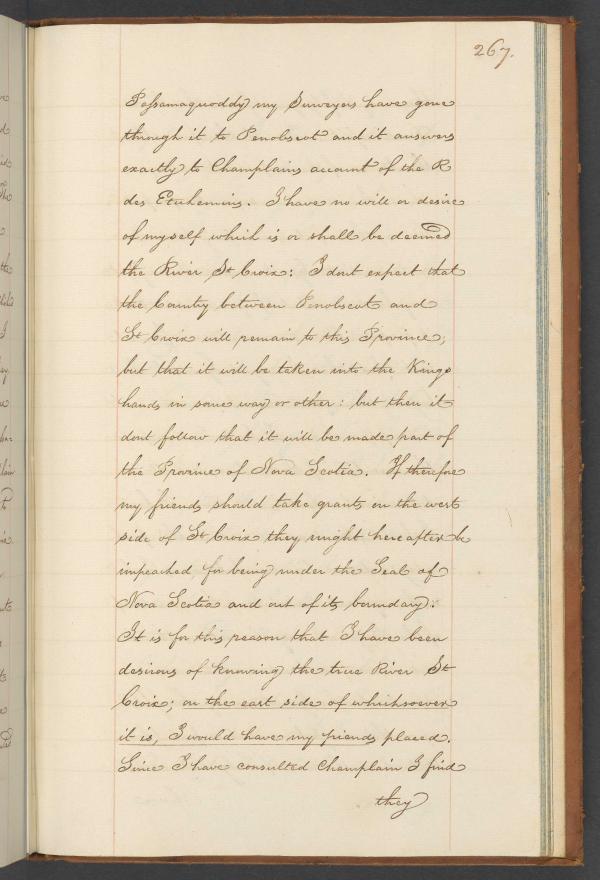 267.
Passamaquoddy my Surveyors have gone
through it to Penobscot and it answers
exactly to Champlains account of the R
des Etechemins. I have no will or desire
of myself which is or shall be deemed
the River St Croix: I dont expect that
the Country between Penobscot and
St Croix will remain to this Province,
but that it will be taken into the Kings
hands in some way or other: but then it
dont follow that it will be made part of
the Province of Nova Scotia. If therefore
my friends should take grants on the west
side of St Croix they might hereafter be
impeached for being under the Seal of
Nova Scotia and out of its boundary:
It is for this reason that I have been
desirous of knowing the true River St
Croix; on the east side of whichsoever
it is, I would have my friends placed.
Since I have consulted Champlain I find
they